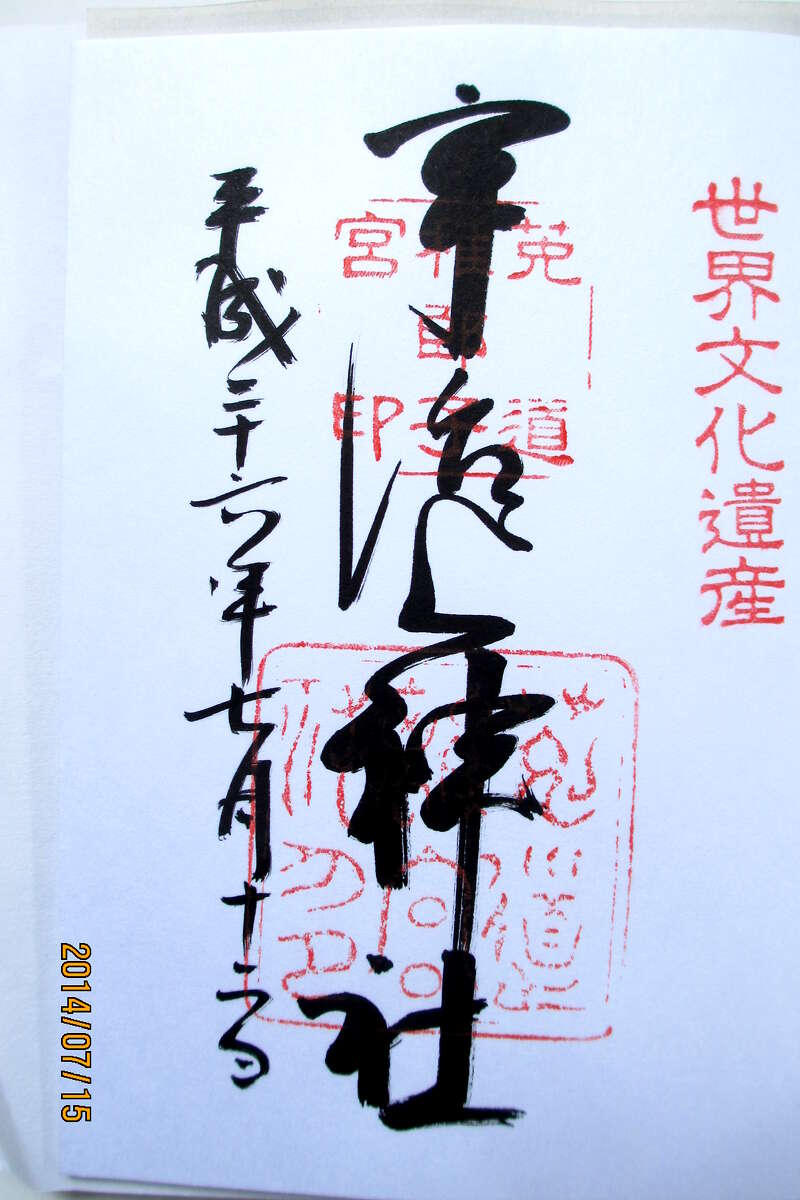 世界文化遺産
宇治上神社
菟道
稚郎子
宮印
平成二十六年七月十二日
2014/07/15